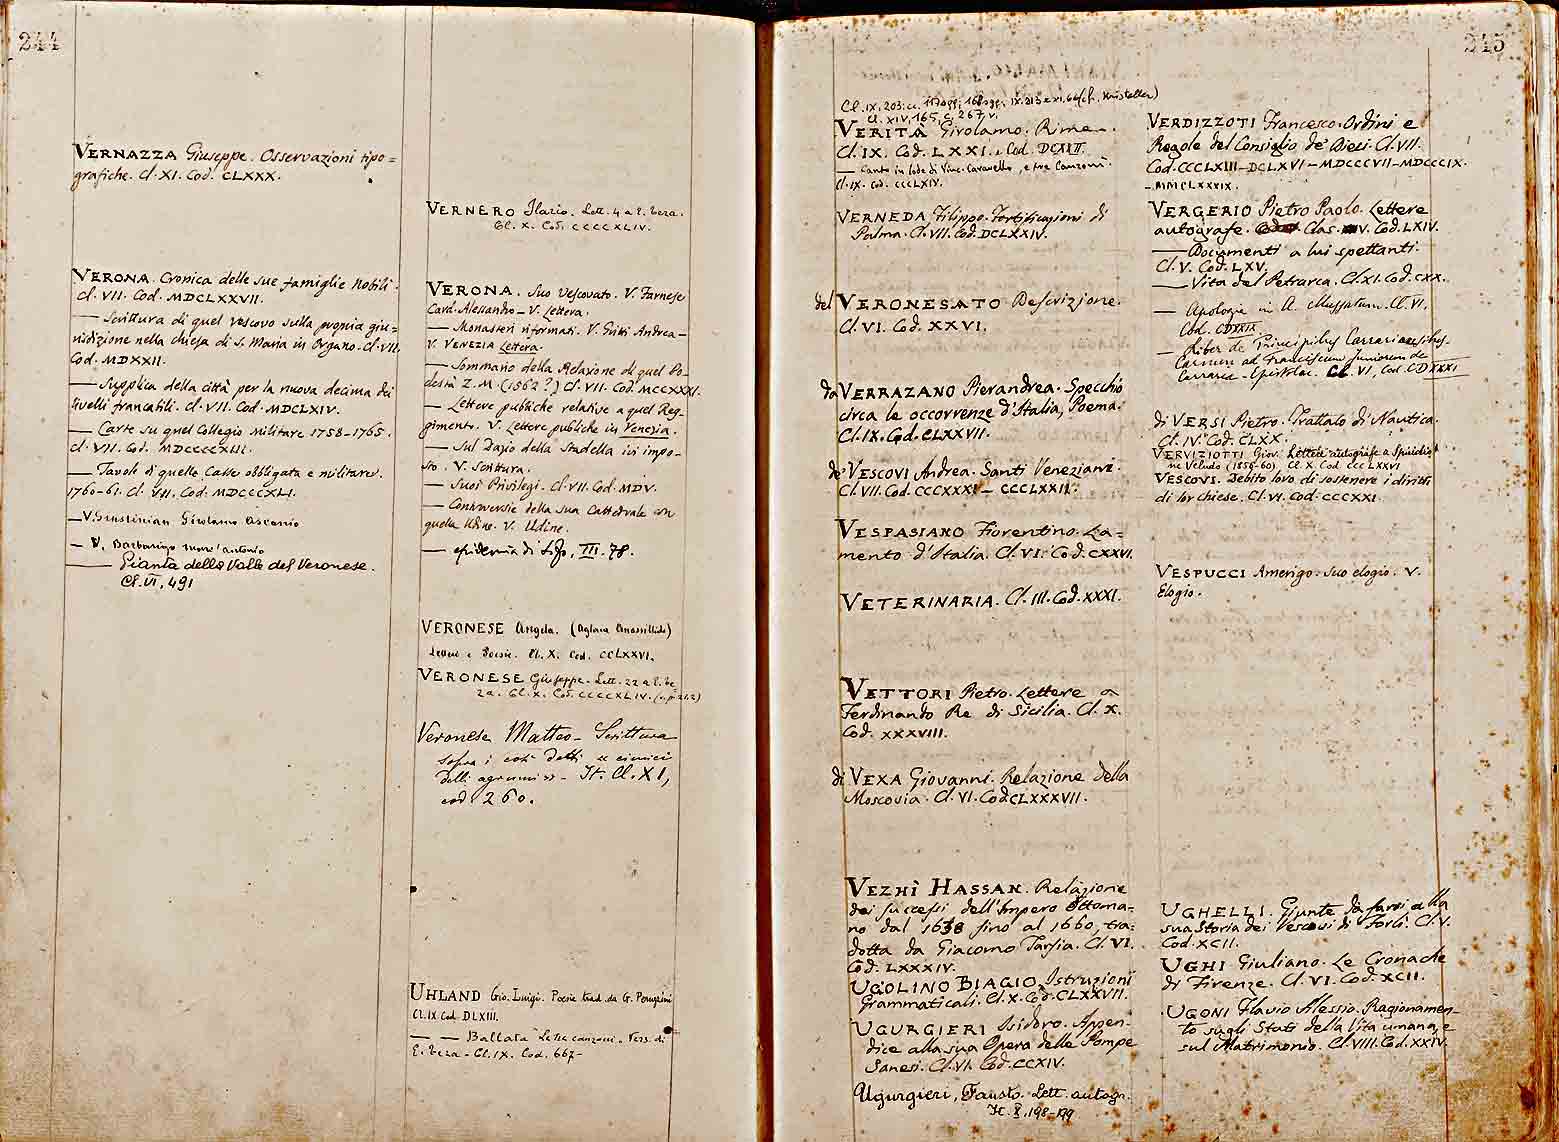 244
VERNAZZA Giuseppe. Osservazioni tipo=
grafiche. Cl. XI. Cod. CLXXX.
VERONA. Cronica delle sue famiglie Nobili.
Cl. VII. Cod. MDCLXXVII.
— Scrittura di quel vescovo sulla propria giu=
risdizione nella chiesa di S. Maria in Organo. Cl. VII.
Cod. MDXXII.
— Supplica della città per la nuova decima dei
livelli francabili. Cl. VII. Cod. MDCLXIV.
— Carte su quel Collegio militare 1758-1765.
Cl. VII. Cod. MDCCCCXIII.
— Tavole di quelle Casse obbligata e militare.
1760-61. Cl. VII. Cod. MDCCCXLI.
— V. Giustinian Girolamo Ascanio
— V. Barbarigo Marc'antonio
— Pianta della Valle del Veronese.
Cl. VI, 491
VERNERO Ilario. Lett. 4 a E. Teza.
Cl. X. Cod. CCCCXLIV.
VERONA. Suo Vescovato. V. Farnese
Card. Alessandro - V. Lettera.
— Monasteri riformati. V. Gritti Andrea -
V. VENEZIA Lettera.
— Sommario della Relazione di quel Po-
destà Z. M. (1562?) Cl. VII. Cod. MCCXXXI.
— Lettere pubbliche relative a quel Reg-
gimento. V. Lettere pubbliche in Venezia.
— Sul Dazio della Stadella ivi impo-
sto. V. Scrittura.
— Suoi Privilegi. Cl. VII. Cod. MDV.
— Controversie della sua Cattedrale con
quella Udine. V. Udine.
— epidemia di tifo, III. 78.
VERONESE Angela. (Aglaia Anassillide)
Lettere e Poesie. Cl. X. Cod. CCLXXVI.
VERONESE Giuseppe. Lett. 22 a E. Te
za. Cl. X. Cod. CCCCXLIV. (v. p. 212)
Veronese Matteo - Scrittura
sopra i così detti « cimici
delli agrumi » - It. Cl. XI,
cod. 260.
UHLAND Gio. Luigi. Poesie trad. da G. Peruzzini
Cl. IX. Cod. DLXIII.
— — Ballata "Le tre canzoni". Vers. di
E. Teza - Cl. IX. Cod. 667-
245
Cl. IX. 203: cc. 157 sgg; 168 sgg; IX. 213 e XI. 66 (ch. Kristeller)
Cl. XIV, 165, c. 267, v.
VERITÀ Girolamo. Rime.
Cl. IX. Cod. LXXI. Cod. DCXIII.
— Canto in lode di Vinc. Caravello, e tre Canzoni.
Cl. IX. Cod. CCCLXIV.
VERNEDA Filippo. Fortificazioni di
Palma. Cl. VII. Cod. DCLXXIV.
del VERONESATO Descrizione.
Cl. VI. Cod. XXVI.
da VERRAZANO Pierandrea. Specchio
circa le occorrenze d'Italia, Poema.
Cl. IX. Cod. CLXXVII.
de' VESCOVI Andrea. Santi Veneziani.
Cl. VII. Cod. CCCXXXI - CCCLXXII.
VESPASIANO Fiorentino. La=
mento d'Italia. Cl. VI. Cod. CXXVI.
VETERINARIA. Cl. III. Cod. XXXI.
VETTORI Pietro. Lettere a
Ferdinando Re di Sicilia. Cl. X.
Cod. XXXVIII.
di VEXA Giovanni. Relazione della
Moscovia. Cl. VI. Cod. CLXXXVII.
VEZHÌ HASSAN. Relazione
dei successi dell'Impero Ottoma=
no dal 1638 fino al 1660, tra=
dotta da Giacomo Tarsia. Cl. VI.
Cod. LXXXIV.
UGOLINO BIAGIO. Istruzioni
Grammaticali. Cl. X. Cod. CLXXVII.
UGURGIERI Isidoro. Appen-
dice alla sua Opera delle Pompe
Sanesi. Cl. VI. Cod. CCXIV.
Ugurgieri, Fausto. Lett. autogr.
It. X, 198-199
VERDIZZOTI Francesco. Ordini e
Regole del Consiglio de' Dieci. Cl. VII.
Cod. CCCLXIII - DCLXVI - MDCCCVII - MDCCCIX.
- MMCLXXXIX.
VERGERIO Pietro Paolo. Lettere
autografe. Clas. V. Cod. LXIV.
— Documenti a lui spettanti.
Cl. V. Cod. LXV.
— Vita del Petrarca. Cl. XI. Cod. CXX.
— Apologia in A. Mussatum. Cl. VI.
Cod. CDXXIX.
— Liber de Principibus Carrariensibus.
Carmen ad Franciscum Juniorem de
Carraria - Epistolae. Cl. VI, Cod. CDXXXI
di VERSI Pietro. Trattato di Nautica.
Cl. IV. Cod. CLXX.
VERVIZIOTTI Giov. Lettere autografe a Spiridio=
ne Veludo (1850-60), Cl. X. Cod. CCCLXXVI
VESCOVI. Debito loro di sostenere i diritti
di lor chiese. Cl. VI. Cod. CCCXXI.
VESPUCCI Amerigo. Suo elogio. V.
Elogio.
UGHELLI. Giunte da farsi alla
sua Storia dei Vescovi di Forlì. Cl. V.
Cod. XCII.
UGHI Giuliano. Le Cronache
di Firenze. Cl. VI. Cod. XCII.
UGONI Flavio Alessio. Ragionamen-
to sugli Stati della Vita umana, e
sul Matrimonio. Cl. VIII. Cod. XXIV.